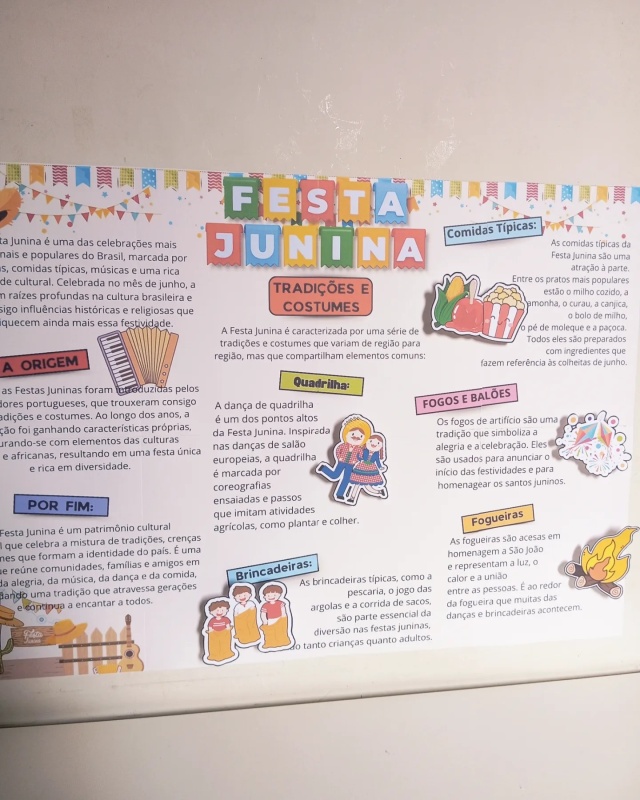 FESTA
JUNINA
Junina é uma das celebrações mais
e populares do Brasil, marcada por
comidas típicas, músicas e uma rica
de cultural. Celebrada no mês de junho, a
raízes profundas na cultura brasileira e
sigo influências históricas e religiosas que
ainda mais essa festividade.
A ORIGEM
as Festas Juninas foram introduzidas pelos
portugueses, que trouxeram consigo
e costumes. Ao longo dos anos, a
foi ganhando características próprias,
com elementos das culturas
e africanas, resultando em uma festa única
e rica em diversidade.
POR FIM:
Festa Junina é um patrimônio cultural
que celebra a mistura de tradições, crenças
que formam a identidade do país. É uma
reúne comunidades, famílias e amigos em
da alegria, da música, da dança e da comida,
uma tradição que atravessa gerações
e continua a encantar a todos.
Festa
Junina
TRADIÇÕES E
COSTUMES
A Festa Junina é caracterizada por uma série de
tradições e costumes que variam de região para
região, mas que compartilham elementos comuns:
Quadrilha:
A dança de quadrilha
é um dos pontos altos
da Festa Junina. Inspirada
nas danças de salão
europeias, a quadrilha
é marcada por
coreografias
ensaiadas e passos
que imitam atividades
agrícolas, como plantar e colher.
Brincadeiras:
As brincadeiras típicas, como a
pescaria, o jogo das
argolas e a corrida de sacos,
são parte essencial da
diversão nas festas juninas,
tanto crianças quanto adultos.
Comidas Típicas:
As comidas típicas da
Festa Junina são uma
atração à parte.
Entre os pratos mais populares
estão o milho cozido, a
pamonha, o curau, a canjica,
o bolo de milho,
o pé de moleque e a paçoca.
Todos eles são preparados
com ingredientes que
fazem referência às colheitas de junho.
FOGOS E BALÕES
Os fogos de artifício são uma
tradição que simboliza a
alegria e a celebração. Eles
são usados para anunciar o
início das festividades e para
homenagear os santos juninos.
Fogueiras
As fogueiras são acesas em
homenagem a São João
e representam a luz, o
calor e a união
entre as pessoas. É ao redor
da fogueira que muitas das
danças e brincadeiras acontecem.